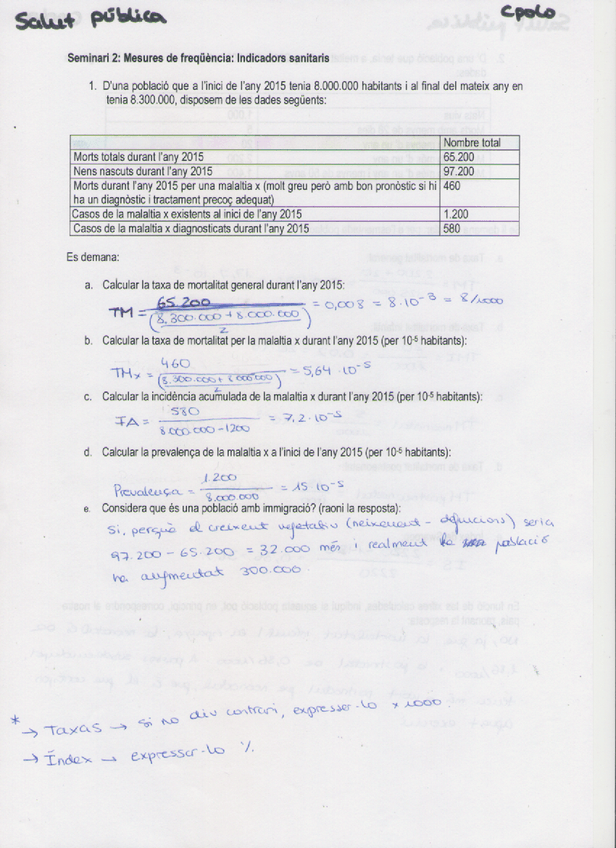 Salut pública
Cpolo
Seminari 2: Mesures de freqüència: Indicadors sanitaris
1. D'una població que a l'inici de l'any 2015 tenia 8.000.000 habitants i al final del mateix any en
tenia 8.300.000, disposem de les dades següents:
Nombre total
Morts totals durant l'any 2015 65.200
Nens nascuts durant l'any 2015 97.200
Morts durant l'any 2015 per una malaltia x (molt greu però amb bon pronòstic si hi 460
ha un diagnòstic i tractament precoç adequat)
Casos de la malaltia x existents al inici de l'any 2015 1.200
Casos de la malaltia x diagnosticats durant l'any 2015 580
Es demana:
a. Calcular la taxa de mortalitat general durant l'any 2015:
65.200
TM = = 0,008 = 8·10⁻³ = 8/1000
(8.300.000 + 8.000.000)
2
b. Calcular la taxa de mortalitat per la malaltia x durant l'any 2015 (per 10⁻⁵ habitants):
460
TMx = = 5,64 · 10⁻⁵
(8.300.000 + 8.000.000)
2
c. Calcular la incidència acumulada de la malaltia x durant l'any 2015 (per 10⁻⁵ habitants):
580
IA = = 7,2·10⁻⁵
8.000.000 - 1200
d. Calcular la prevalença de la malaltia x a l'inici de l'any 2015 (per 10⁻⁵ habitants):
1.200
Prevalença = = 15·10⁻⁵
8.000.000
e. Considera que és una població amb immigració? (raoni la resposta):
Si, perquè el creixent vegetatiu (neixement - defuncions) seria
97.200 - 65.200 = 32.000 més i realment la població
ha augmentat 300.000.
* → Taxas → si no diu contrari, expressar-lo x1000
→ Índex → expressar-lo %